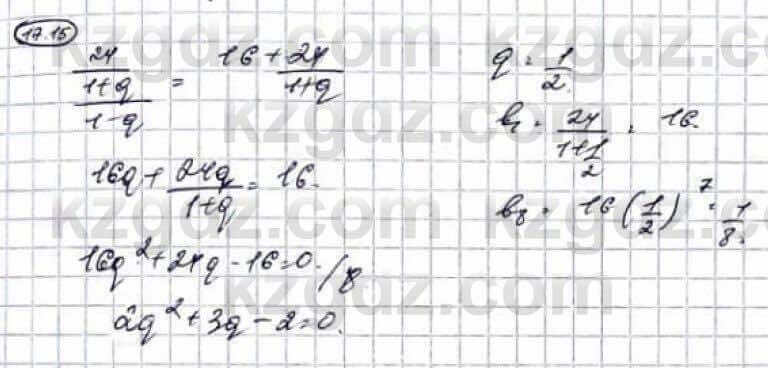 17.15
24/(1+q) / (1-q) = 16 + 24/(1+q)
16q + 24q/(1+q) = 16.
16q² + 24q - 16 = 0. /8
2q² + 3q - 2 = 0.
q = 1/2.
b₁ = 24/(1+1/2) = 16.
b₈ = 16(1/2)⁷ = 1/8.
kzgdz.com
kzgdz.com
kzgdz.com
kzgdz.com